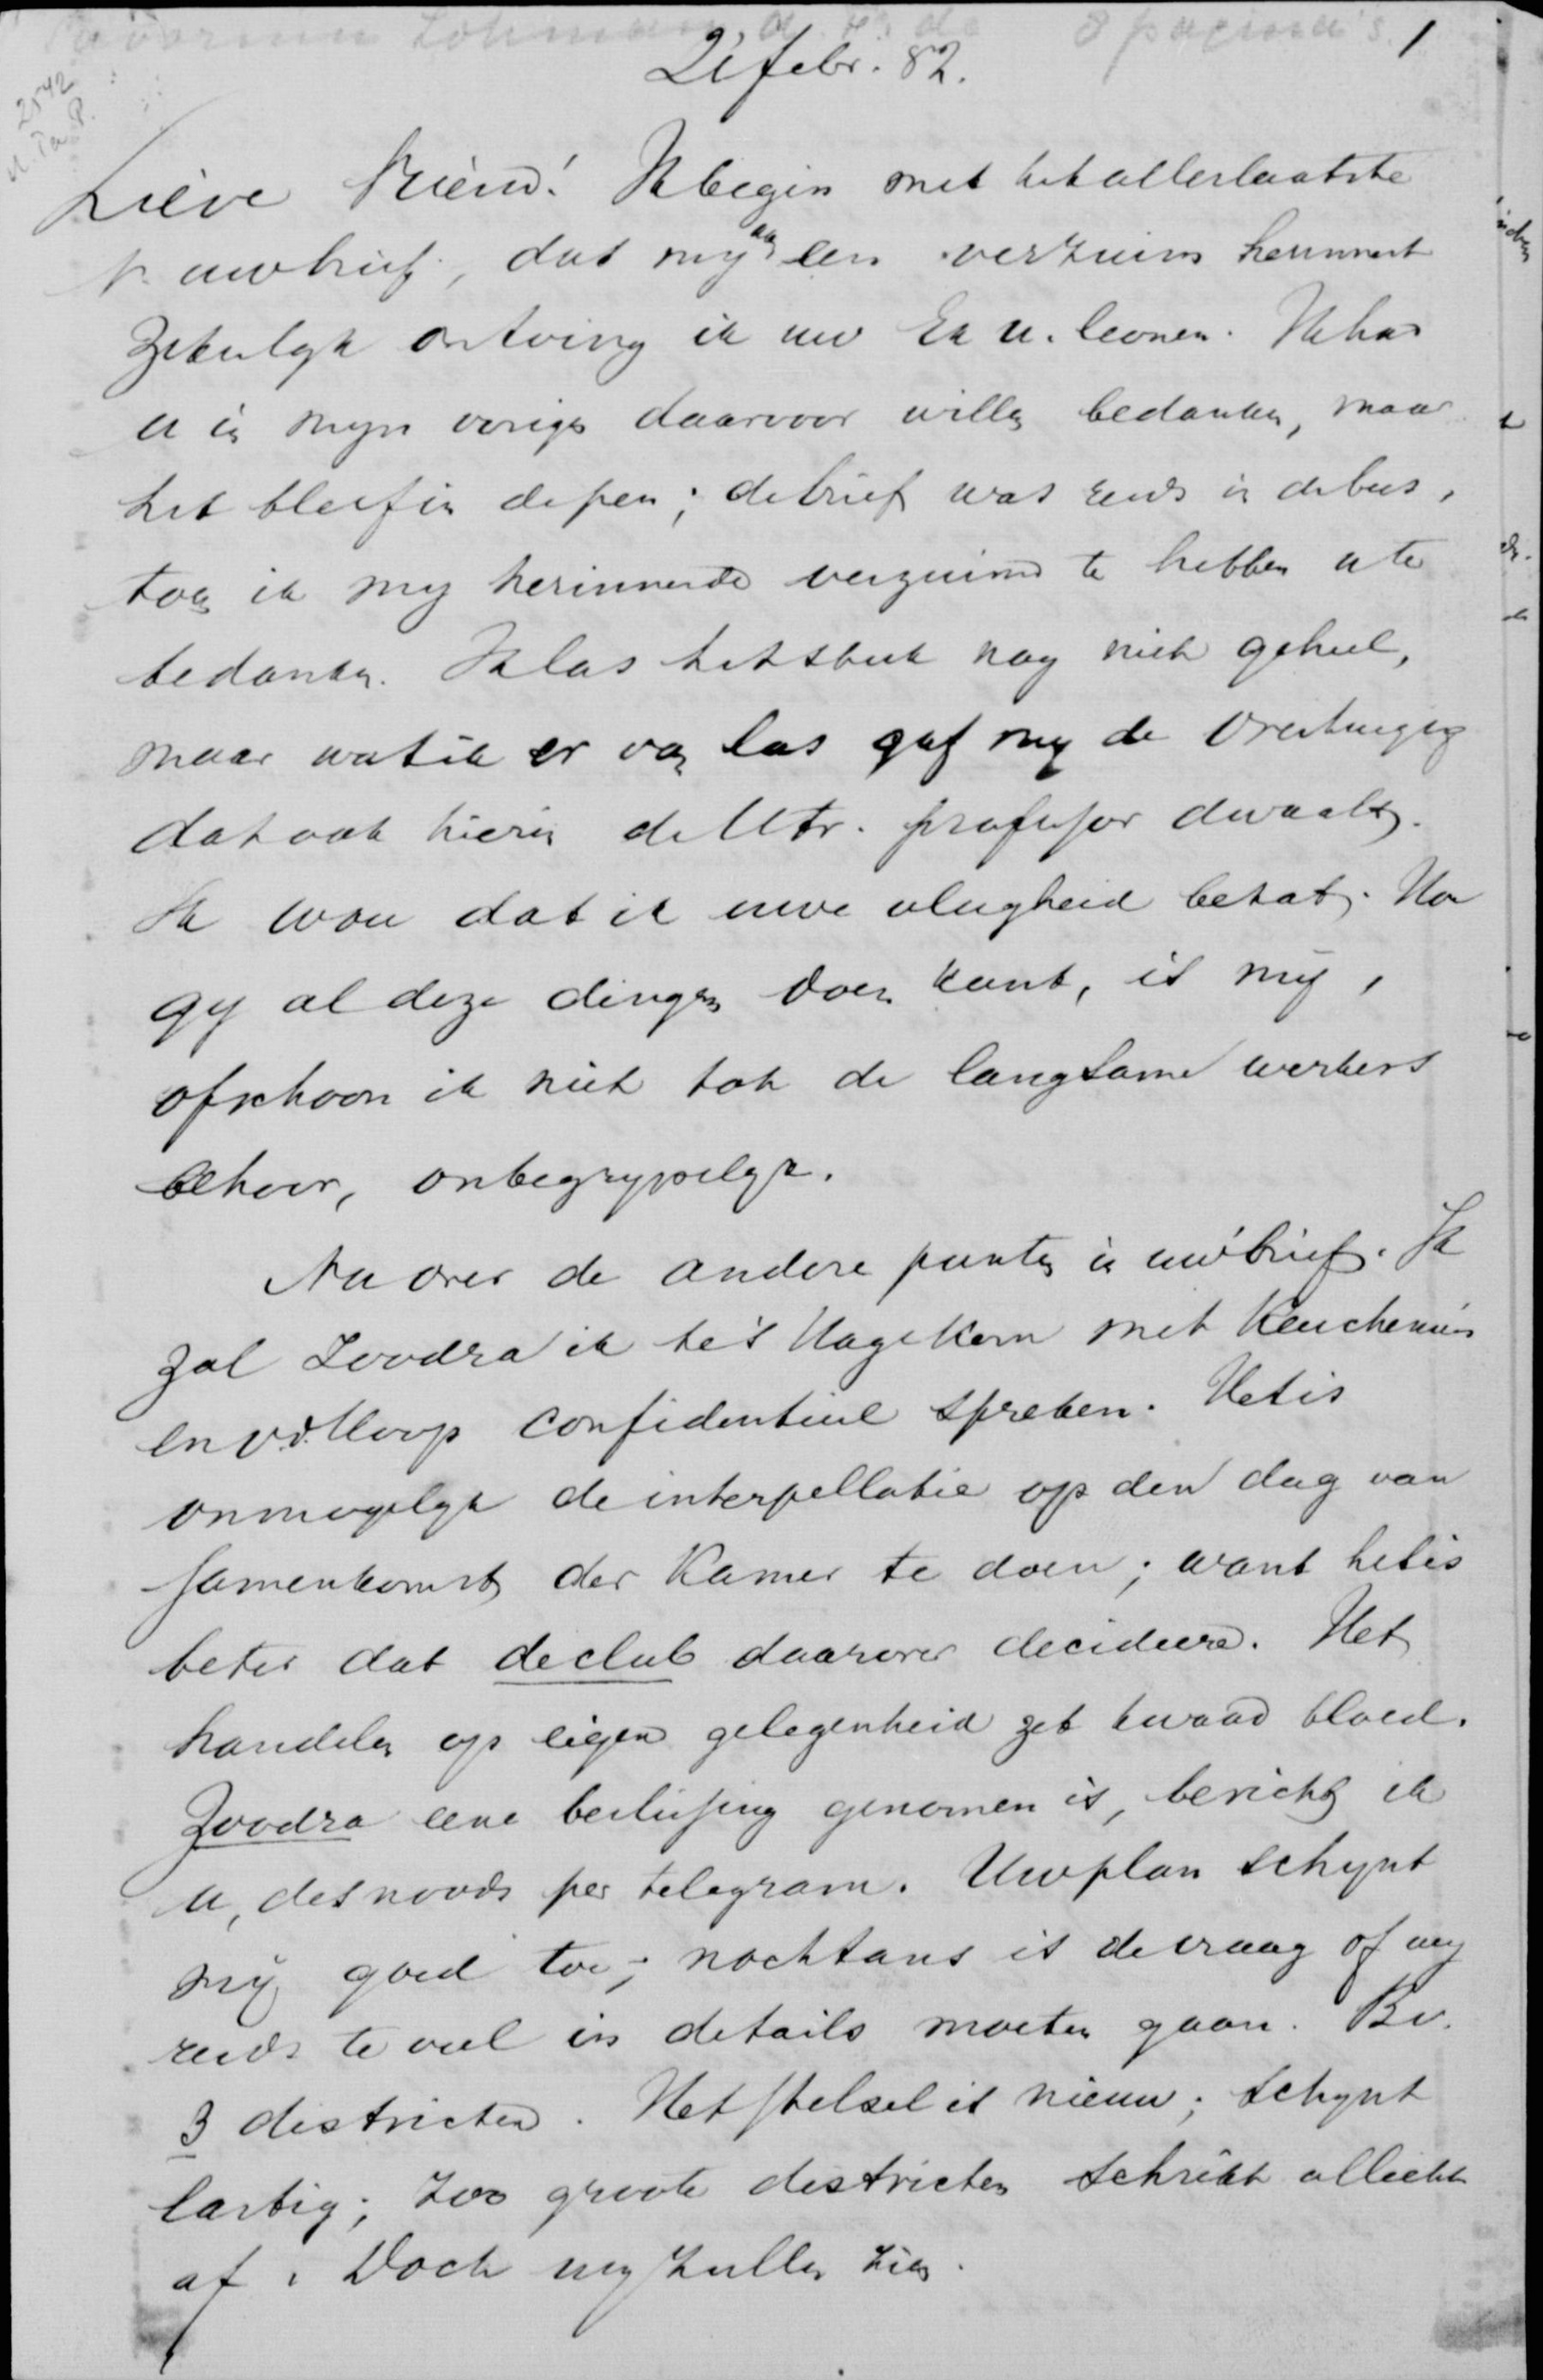 Lohman 8 pagina's 1
21 febr. 82.
2542
Lieve Vriend! Ik begin met het allerlaatste
v. uw brief, dat my aan een verzuim herinnert
Zekerlyk ontving ik uw Ex u. leonen. Ik had
u in myn vorige daarvoor willen bedanken, maar
het bleef in de pen; de brief was reeds in de bus,
toen ik my herinnerde verzuimd te hebben u te
bedanken. Ik las het stuk nog niet geheel,
maar wat ik er van las gaf my de overtuiging
dat ook hierin de Utr. professor dwaalt.
Ik wou dat ik uwe vlugheid bezat. Hoe
gy al deze dingen doen kunt, is my,
ofschoon ik niet tot de langsame werkers
behoor, onbegrypelyk.
Nu over de andere punten in uw brief. Ik
zal zoodra ik te 's Hage kom met Keuchenius
en v.d. Hoop confidentieel spreken. Het is
onmogelyk de interpellatie op den dag van
samenkomst der Kamer te doen; want het is
beter dat de club daarover decideere. Het
handelen op eigen gelegenheid zet kwaad bloed.
Zoodra eene beslissing genomen is, bericht ik
u, desnoods per telegram. Uw plan schynt
my goed toe; nochtans is de vraag of wy
reeds te veel in details moeten gaan. Bv.
3 districten. Het stelsel is nieuw; schynt
lastig; zoo groote districten schrikt allicht
af. Doch wy zullen zien.